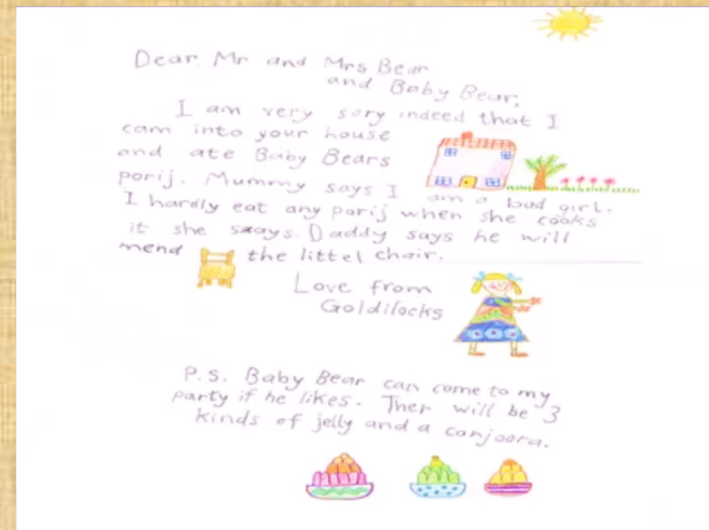 Dear Mr and Mrs Bear
and Baby Bear,
I am very sory indeed that I
cam into your house
and ate Baby Bears
porij. Mummy says I am a bad girl.
I hardly eat any porij when she cooks
it she says. Daddy says he will
mend the littel chair.
Love from
Goldilocks
P.S. Baby Bear can come to my
party if he likes. Ther will be 3
kinds of jelly and a conjoora.